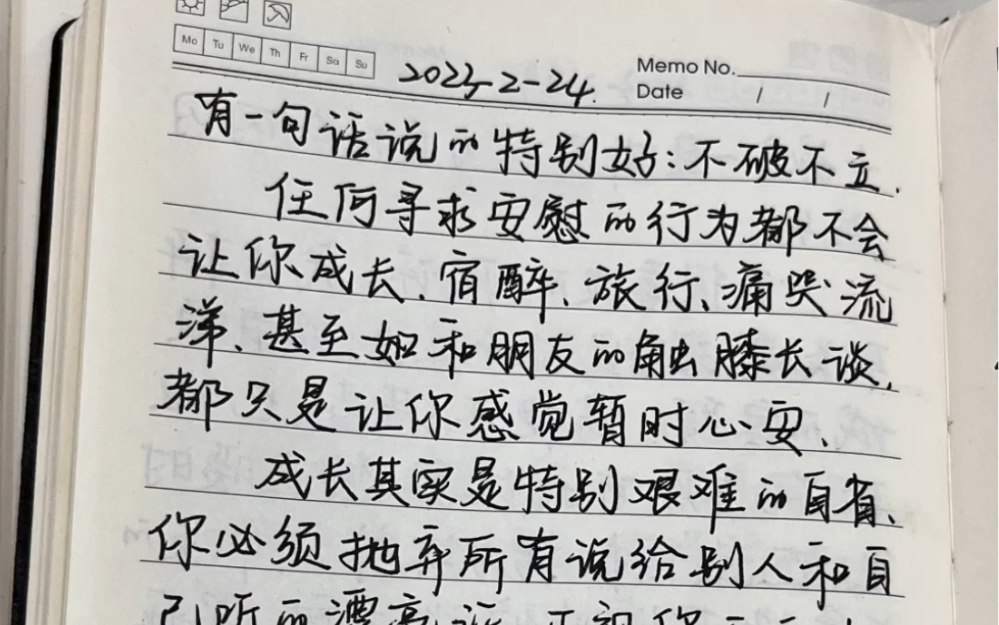 Mo Tu We Th Fr Sa Su
2023-2-24.
Memo No.
Date / /
有一句话说的特别好:不破不立.
任何寻求安慰的行为都不会
让你成长、宿醉、旅行、痛哭流
涕、甚至如和朋友的触膝长谈,
都只是让你感觉暂时心安、
成长其实是特别艰难的自省、
你必须抛弃所有说给别人和自
己听的漂亮话 正视你